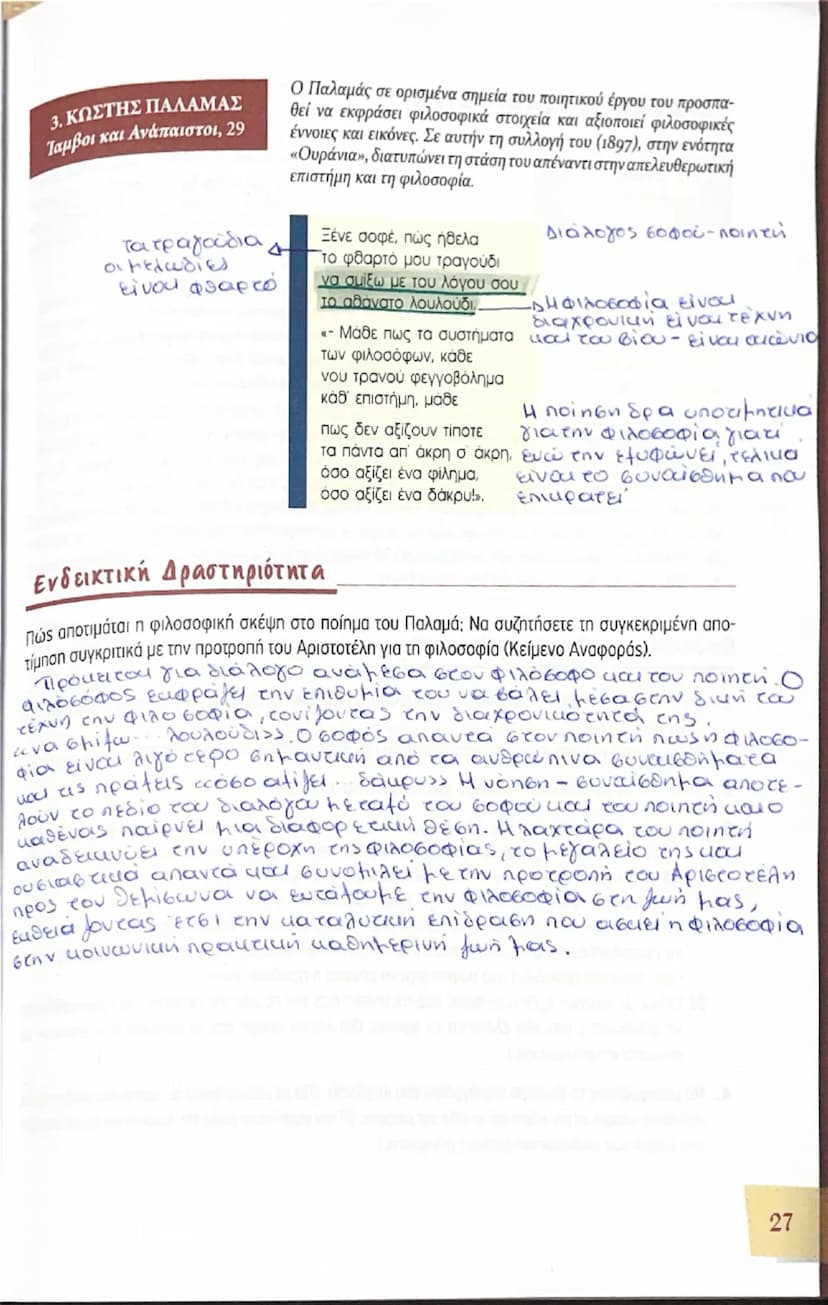 3. ΚΩΣΤΗΣ ΠΑΛΑΜΑΣ
Ἴαμβοι και Ανάπαιστοι, 29
Ο Παλαμάς σε ορισμένα σημεία του ποιητικού έργου του προσπα-
θεί να εκφράσει φιλοσοφικά στοιχεία και αξιοποιεί φιλοσοφικές
έννοιες και εικόνες. Σε αυτήν τη συλλογή του (1897), στην ενότητα
«Ουράνια», διατυπώνει τη στάση του απέναντι στην απελευθερωτική
επιστήμη και τη φιλοσοφία.
Ξένε σοφέ, πώς ήθελα
το φθαρτό μου τραγούδι
να σμίξω με του λόγου σου
το αθάνατο λουλούδι.
«- Μάθε πως τα συστήματα
των φιλοσόφων, κάθε
νου τρανού φεγγοβόλημα
κάθ' επιστήμη, μάθε
πως δεν αξίζουν τίποτε
τα πάντα απ' άκρη σ' άκρη,
όσο αξίζει ένα φίλημα,
όσο αξίζει ένα δάκρυ!».
τα τραγούδια
οι μελωδίες
είναι φθαρτό
Διάλογος σοφού-ποιητή
Η φιλοσοφία είναι
διαχρονική είναι τέχνη
και του βίου - είναι αιώνιο
Η ποίηση δρα υποτιμητικά
για την φιλοσοφία, γιατί
ενώ την εξυψώνει, τελικά
είναι το συναίσθημα που
επικρατεί
Ενδεικτική Δραστηριότητα
Πώς αποτιμάται η φιλοσοφική σκέψη στο ποίημα του Παλαμά; Να συζητήσετε τη συγκεκριμένη απο-
τίμηση συγκριτικά με την προτροπή του Αριστοτέλη για τη φιλοσοφία (Κείμενο Αναφοράς).
Πρόκειται για διάλογο ανάμεσα στον φιλόσοφο και τον ποιητή. Ο
φιλόσοφος εκφράζει την επιθυμία του να βάλει μέσα στην δική του
τέχνη την φιλοσοφία, τονίζοντας την διαχρονικότητά της.
«να σμίξω... λουλούδι». Ο σοφός απαντά στον ποιητή πως η φιλοσο-
φία είναι λιγότερο σημαντική από τα ανθρώπινα συναισθήματα
και τις πράξεις «όσο αξίζει... δάκρυ» Η νόηση - συναίσθημα αποτε-
λούν το πεδίο του διαλόγου μεταξύ του σοφού και του ποιητή και ο
καθένας παίρνει μια διαφορετική θέση. Η λαχτάρα του ποιητή
αναδεικνύει την υπεροχή της φιλοσοφίας, το μεγαλείο της και
ουσιαστικά απαντά και συνομιλεί με την προτροπή του Αριστοτέλη
προς τον Θεμίσωνα να εντάξουμε την φιλοσοφία στη ζωή μας,
εκθειάζοντας έτσι την καταλυτική επίδραση που ασκεί η φιλοσοφία
στην κοινωνική πρακτική καθημερινή ζωή μας.
27